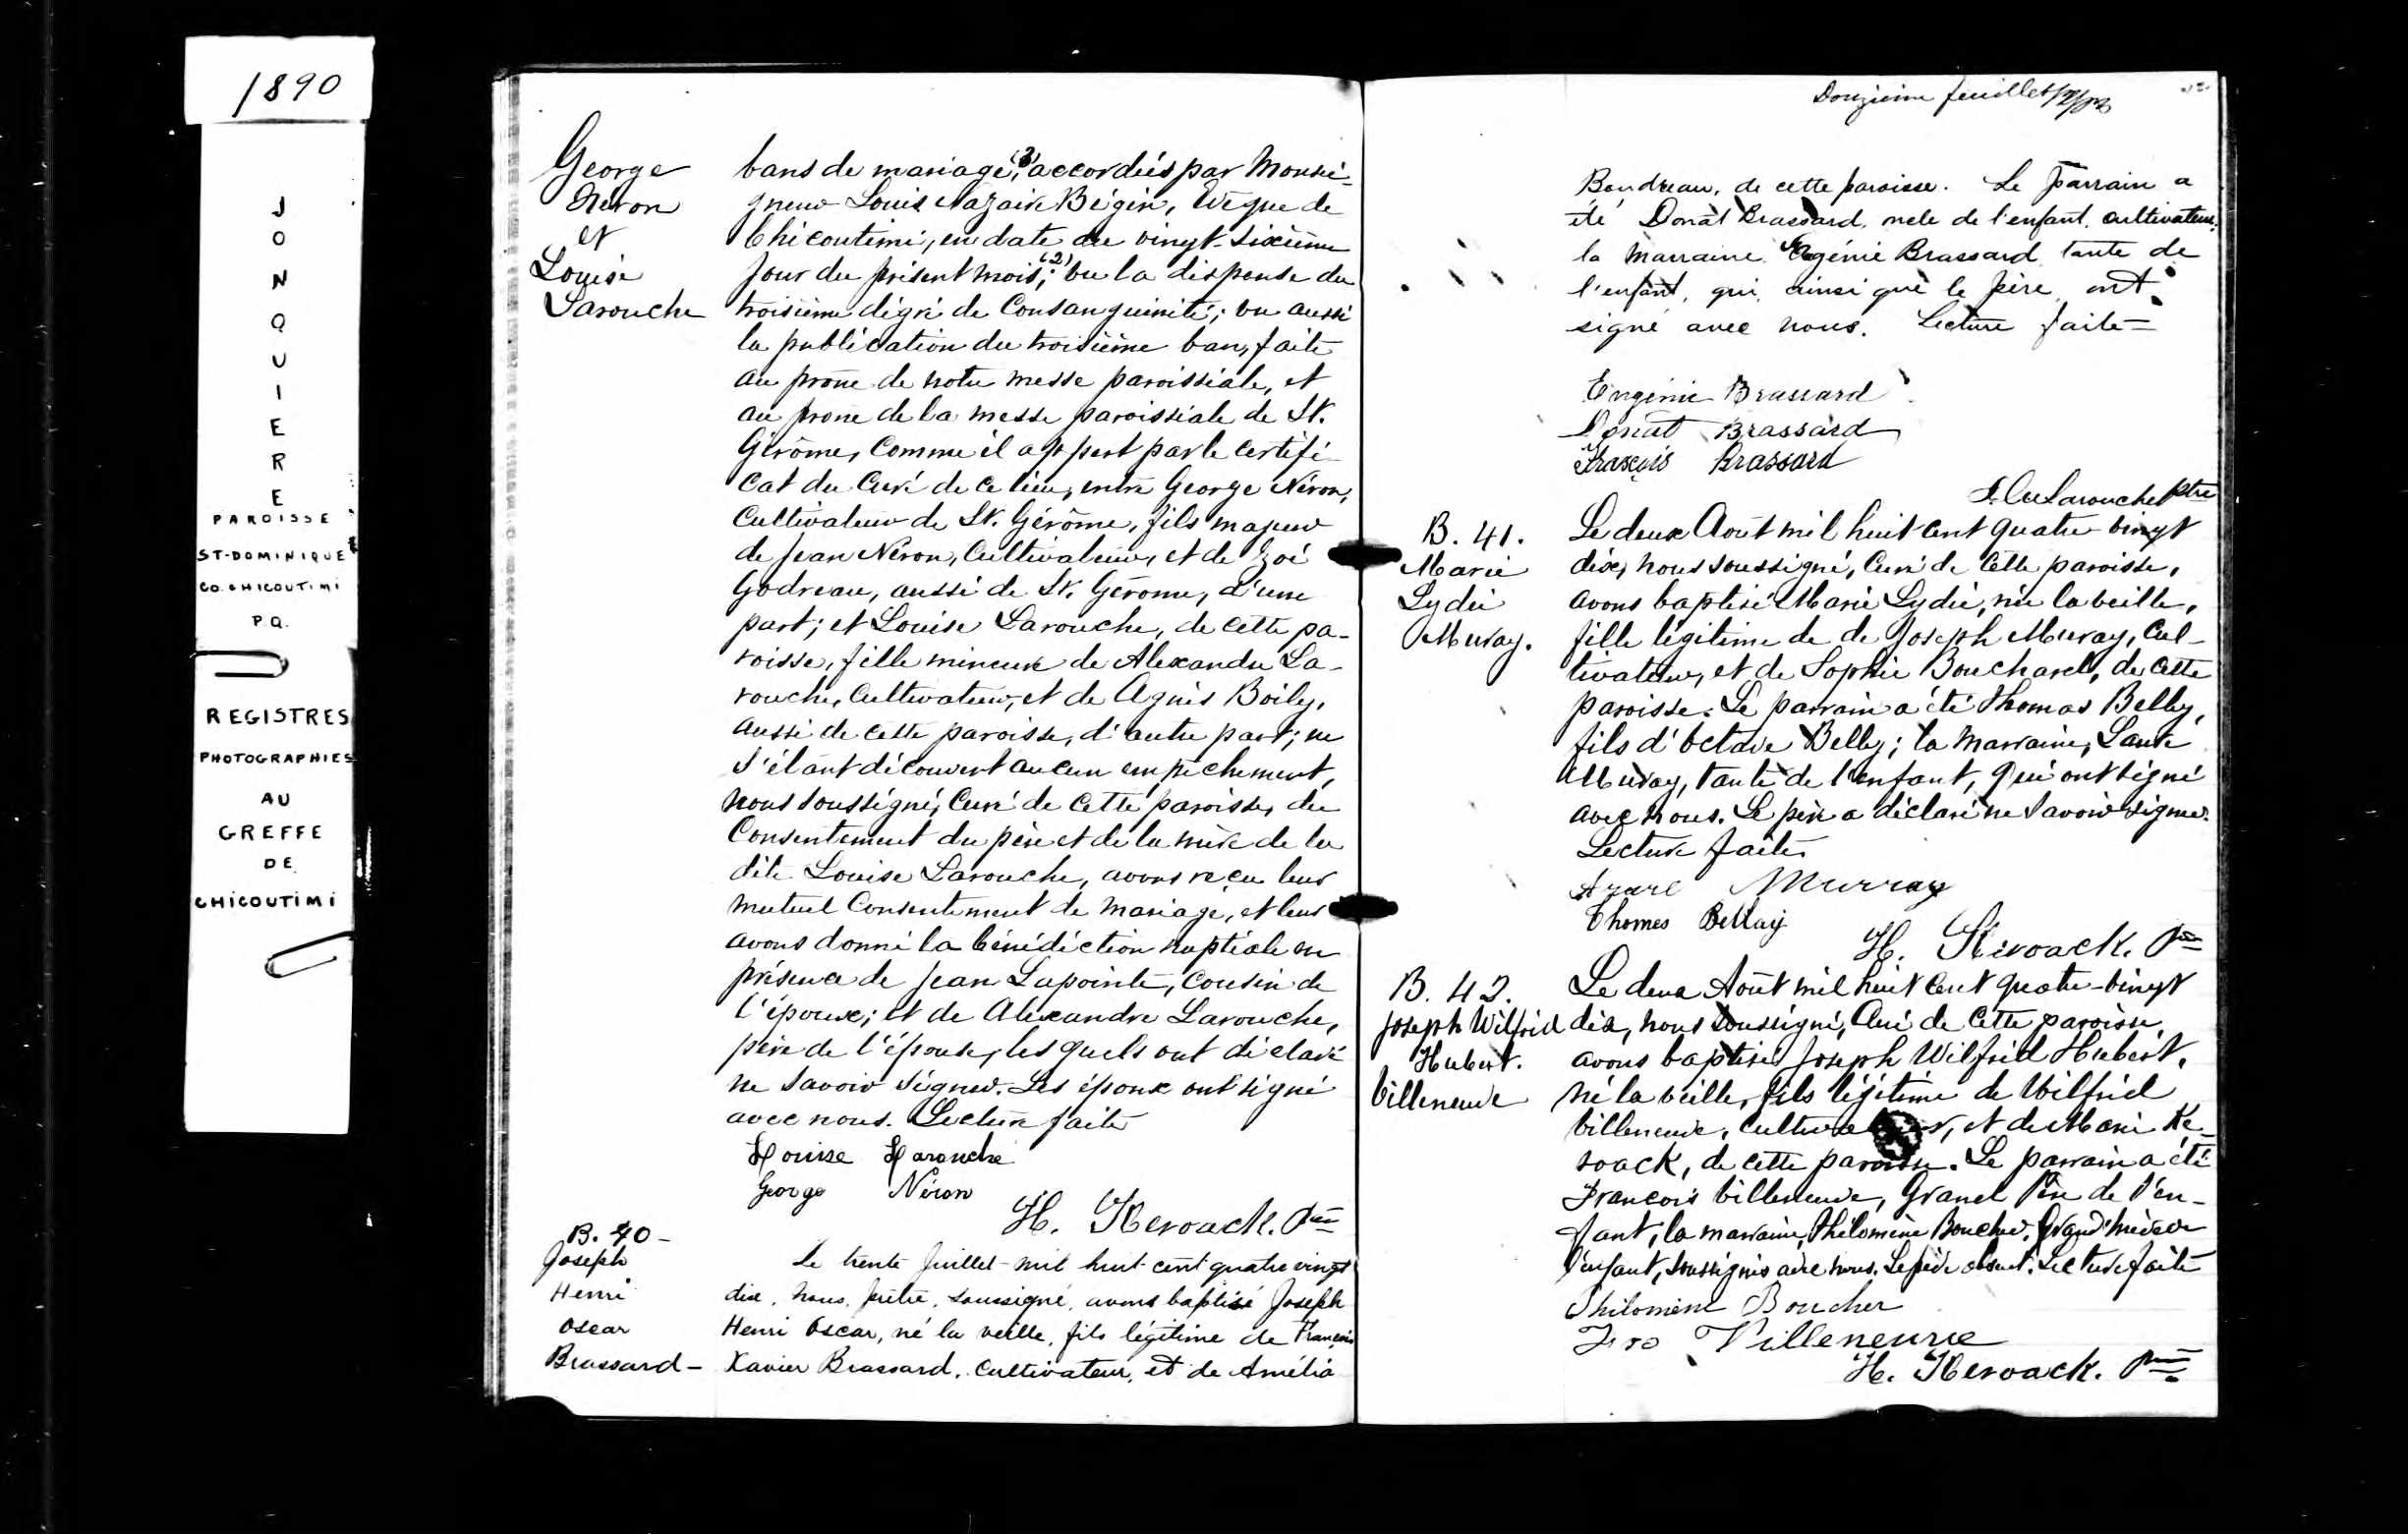 1890
JONQUIERE
PAROISSE
ST-DOMINIQUE
CO. CHICOUTIMI
P.Q.
REGISTRES
PHOTOGRAPHIES
AU
GREFFE
DE
CHICOUTIMI
George
Néron
et
Louise
Larouche
bans de mariage, (3) accordées par Monsei-
gneur Louis Nazaire Bégin, Evêque de
Chicoutimi, en date du vingt-sixième
jour du présent mois; (2) vu la dispense du
troisième dégré de Consanguinité; vu aussi
la publication du troisième ban, faite
au prône de notre messe paroissiale, et
au prone de la messe paroissiale de St.
Gérôme, comme il appert par le certifi-
cat du Curé de ce lieu, entre George Néron,
Cultivateur de St. Gérôme, fils majeur
de Jean Néron, Cultivateur, et de Zoé
Godreau, aussi de St. Gérome, d'une
part; et Louise Larouche, de cette pa-
roisse, fille mineure de Alexandre La-
rouche, Cultivateur, et de Agnès Boily,
aussi de cette paroisse, d'autre part; ne
s'étant découvert aucun empêchement,
nous soussigné, Curé de cette paroisse, du
Consentement du père et de la mère de la
dite Louise Larouche, avons reçu leur
mutuel Consentement de mariage, et leur
avons donné la bénédiction nuptiale en
présence de Jean Lapointe, cousin de
l'époux; et de Alexandre Larouche,
père de l'épouse, lesquels ont déclaré
ne savoir signer. Les époux ont signé
avec nous. Lecture faite
Louise Larouche
George Néron
H. Kerouack. Ptre
B. 40-
Joseph
Henri
Oscar
Brassard-
Le trente Juillet mil huit cent quatre vingt
dix, nous, prêtre, soussigné, avons baptisé Joseph
Henri Oscar, né la veille, fils légitime de François
Xavier Brassard, cultivateur, et de Amélia
Douzième feuillet
Boudreau, de cette paroisse. Le Parrain a
été Donat Brassard, oncle de l'enfant, cultivateur;
la Marraine Eugénie Brassard tante de
l'enfant, qui, ainsi que le père, ont
signé avec nous. Lecture faite=
Eugénie Brassard
Donat Brassard
François Brassard
Larouche Ptre
B. 41.
Marie
Lydie
Muray.
Le deux Août mil huit cent quatre vingt
dix, nous soussigné, Curé de cette paroisse,
avons baptisé Marie Lydie, née la veille,
fille légitime de de Joseph Muray, Cul-
tivateur, et de Sophie Bouchard, de cette
paroisse. Le parrain a été Thomas Belley,
fils d'Octave Belley; la marraine, Laure
Muray, tante de l'enfant, qui ont signé
avec nous. Le père a déclaré ne savoir signer.
Lecture faite
Murray
Thomas Bellay
H. Kerouack. Ptre
B. 42.
Joseph Wilfrid
Hubert.
Villeneuve
Le deux Août mil huit cent quatre-vingt
dix, nous soussigné, Curé de cette paroisse,
avons baptisé Joseph Wilfrid Hubert,
né la veille, fils légitime de Wilfrid
Villeneuve, cultivateur, et de Marie Ke-
roack, de cette paroisse. Le parrain a été
François Villeneuve, Grand Père de l'en-
fant; la marraine, Philomène Boucher, Grand'mère de
l'enfant, soussignés avec nous. Le père absent. Lecture faite
Philomène Boucher
Frs Villeneuve
H. Kerouack. Ptre